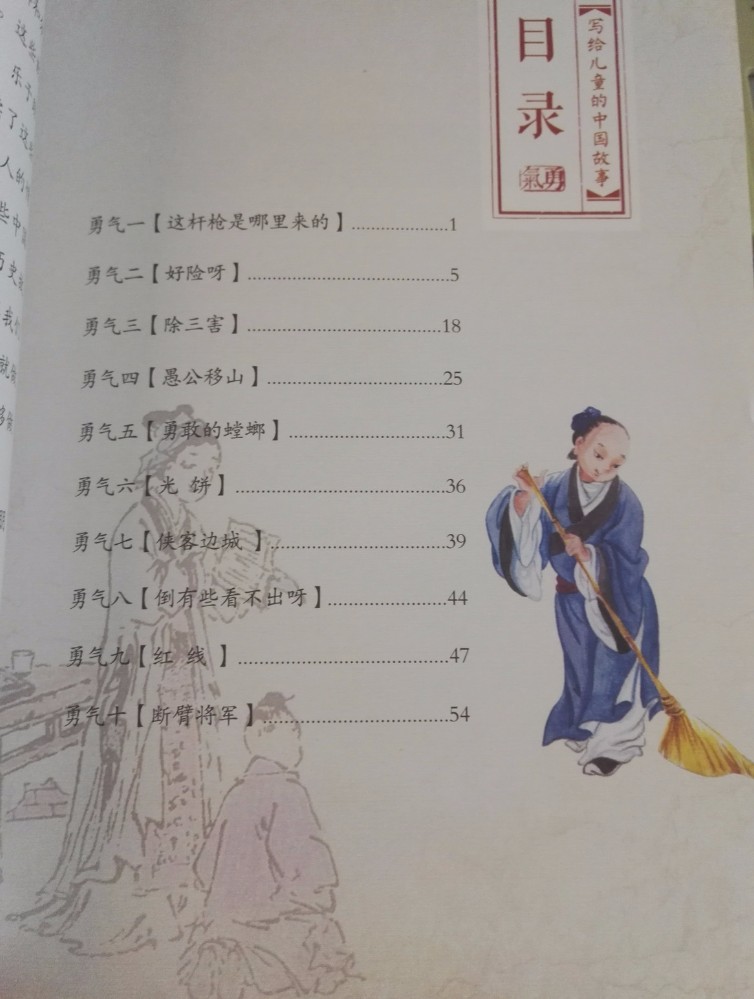 目录
写给儿童的中国故事
勇氣
勇气一【这杆枪是哪里来的】..................1
勇气二【好险呀】......................................5
勇气三【除三害】......................................18
勇气四【愚公移山】..................................25
勇气五【勇敢的螳螂】..............................31
勇气六【光 饼】........................................36
勇气七【侠客边城 】.................................39
勇气八【倒有些看不出呀】......................44
勇气九【红 线 】.......................................47
勇气十【断臂将军】..................................54